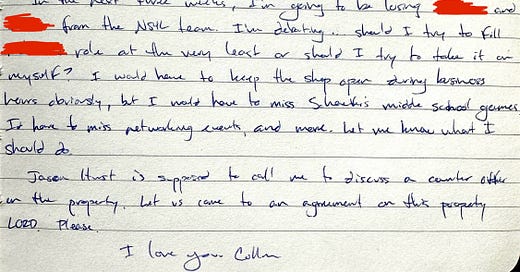 In the next three weeks, I'm going to be losing and
from the team. I'm debating... should I try to fill
role at the very least or should I try to take it on
myself? I would have to keep the shop open during business
hours obviously, but I would have to miss middle school games
I'd have to miss networking events, and more. Let me know what I
should do.
Jason is supposed to call me to discuss a counter offer
on the property. Let us come to an agreement on this property
LORD. Please.
I love you. Collin